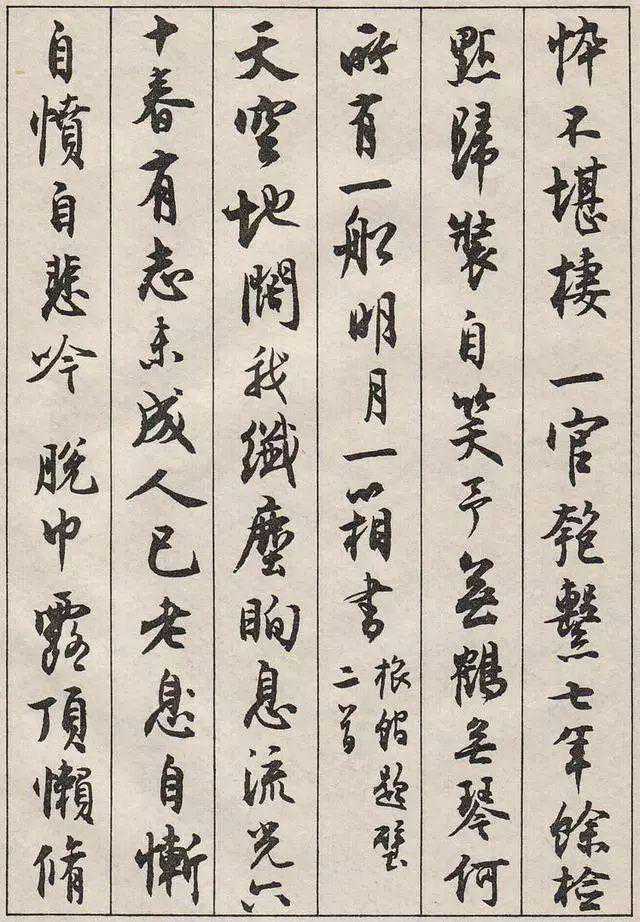 忰不堪棲 一官匏繫七年餘檢
點歸裝自笑予無鶴無琴何
所有一船明月一箱書 旅館題壁
二首
天空地闊我纖塵眴息流光六
十春有志未成人已老息自慚
自憤自悲吟 脫巾露頂懶脩